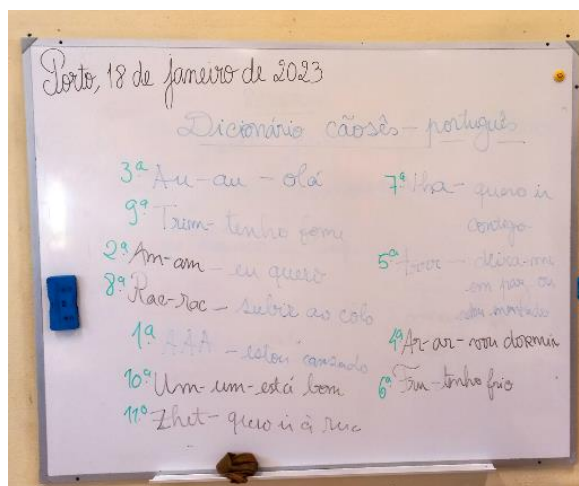 Porto, 18 de janeiro de 2023
Dicionário cãosês - português
3ª Au-au - olá
9ª Trim - tenho fome
2ª Am-am - eu quero
8ª Rac-rac - subir ao colo
1ª AAA - estou cansado
10ª Um-um - está bom
11ª Zhet - quero ir à rua
7ª - quero ir
contigo
5ª - deixa-me
em paz ou
4ª Ar-ar - vou dormir
6ª - tenho frio